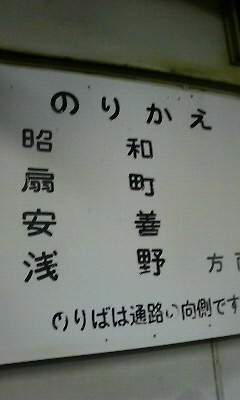 のりかえ
昭和
扇町
安善
浅野 方面
のりばは通路の向側です